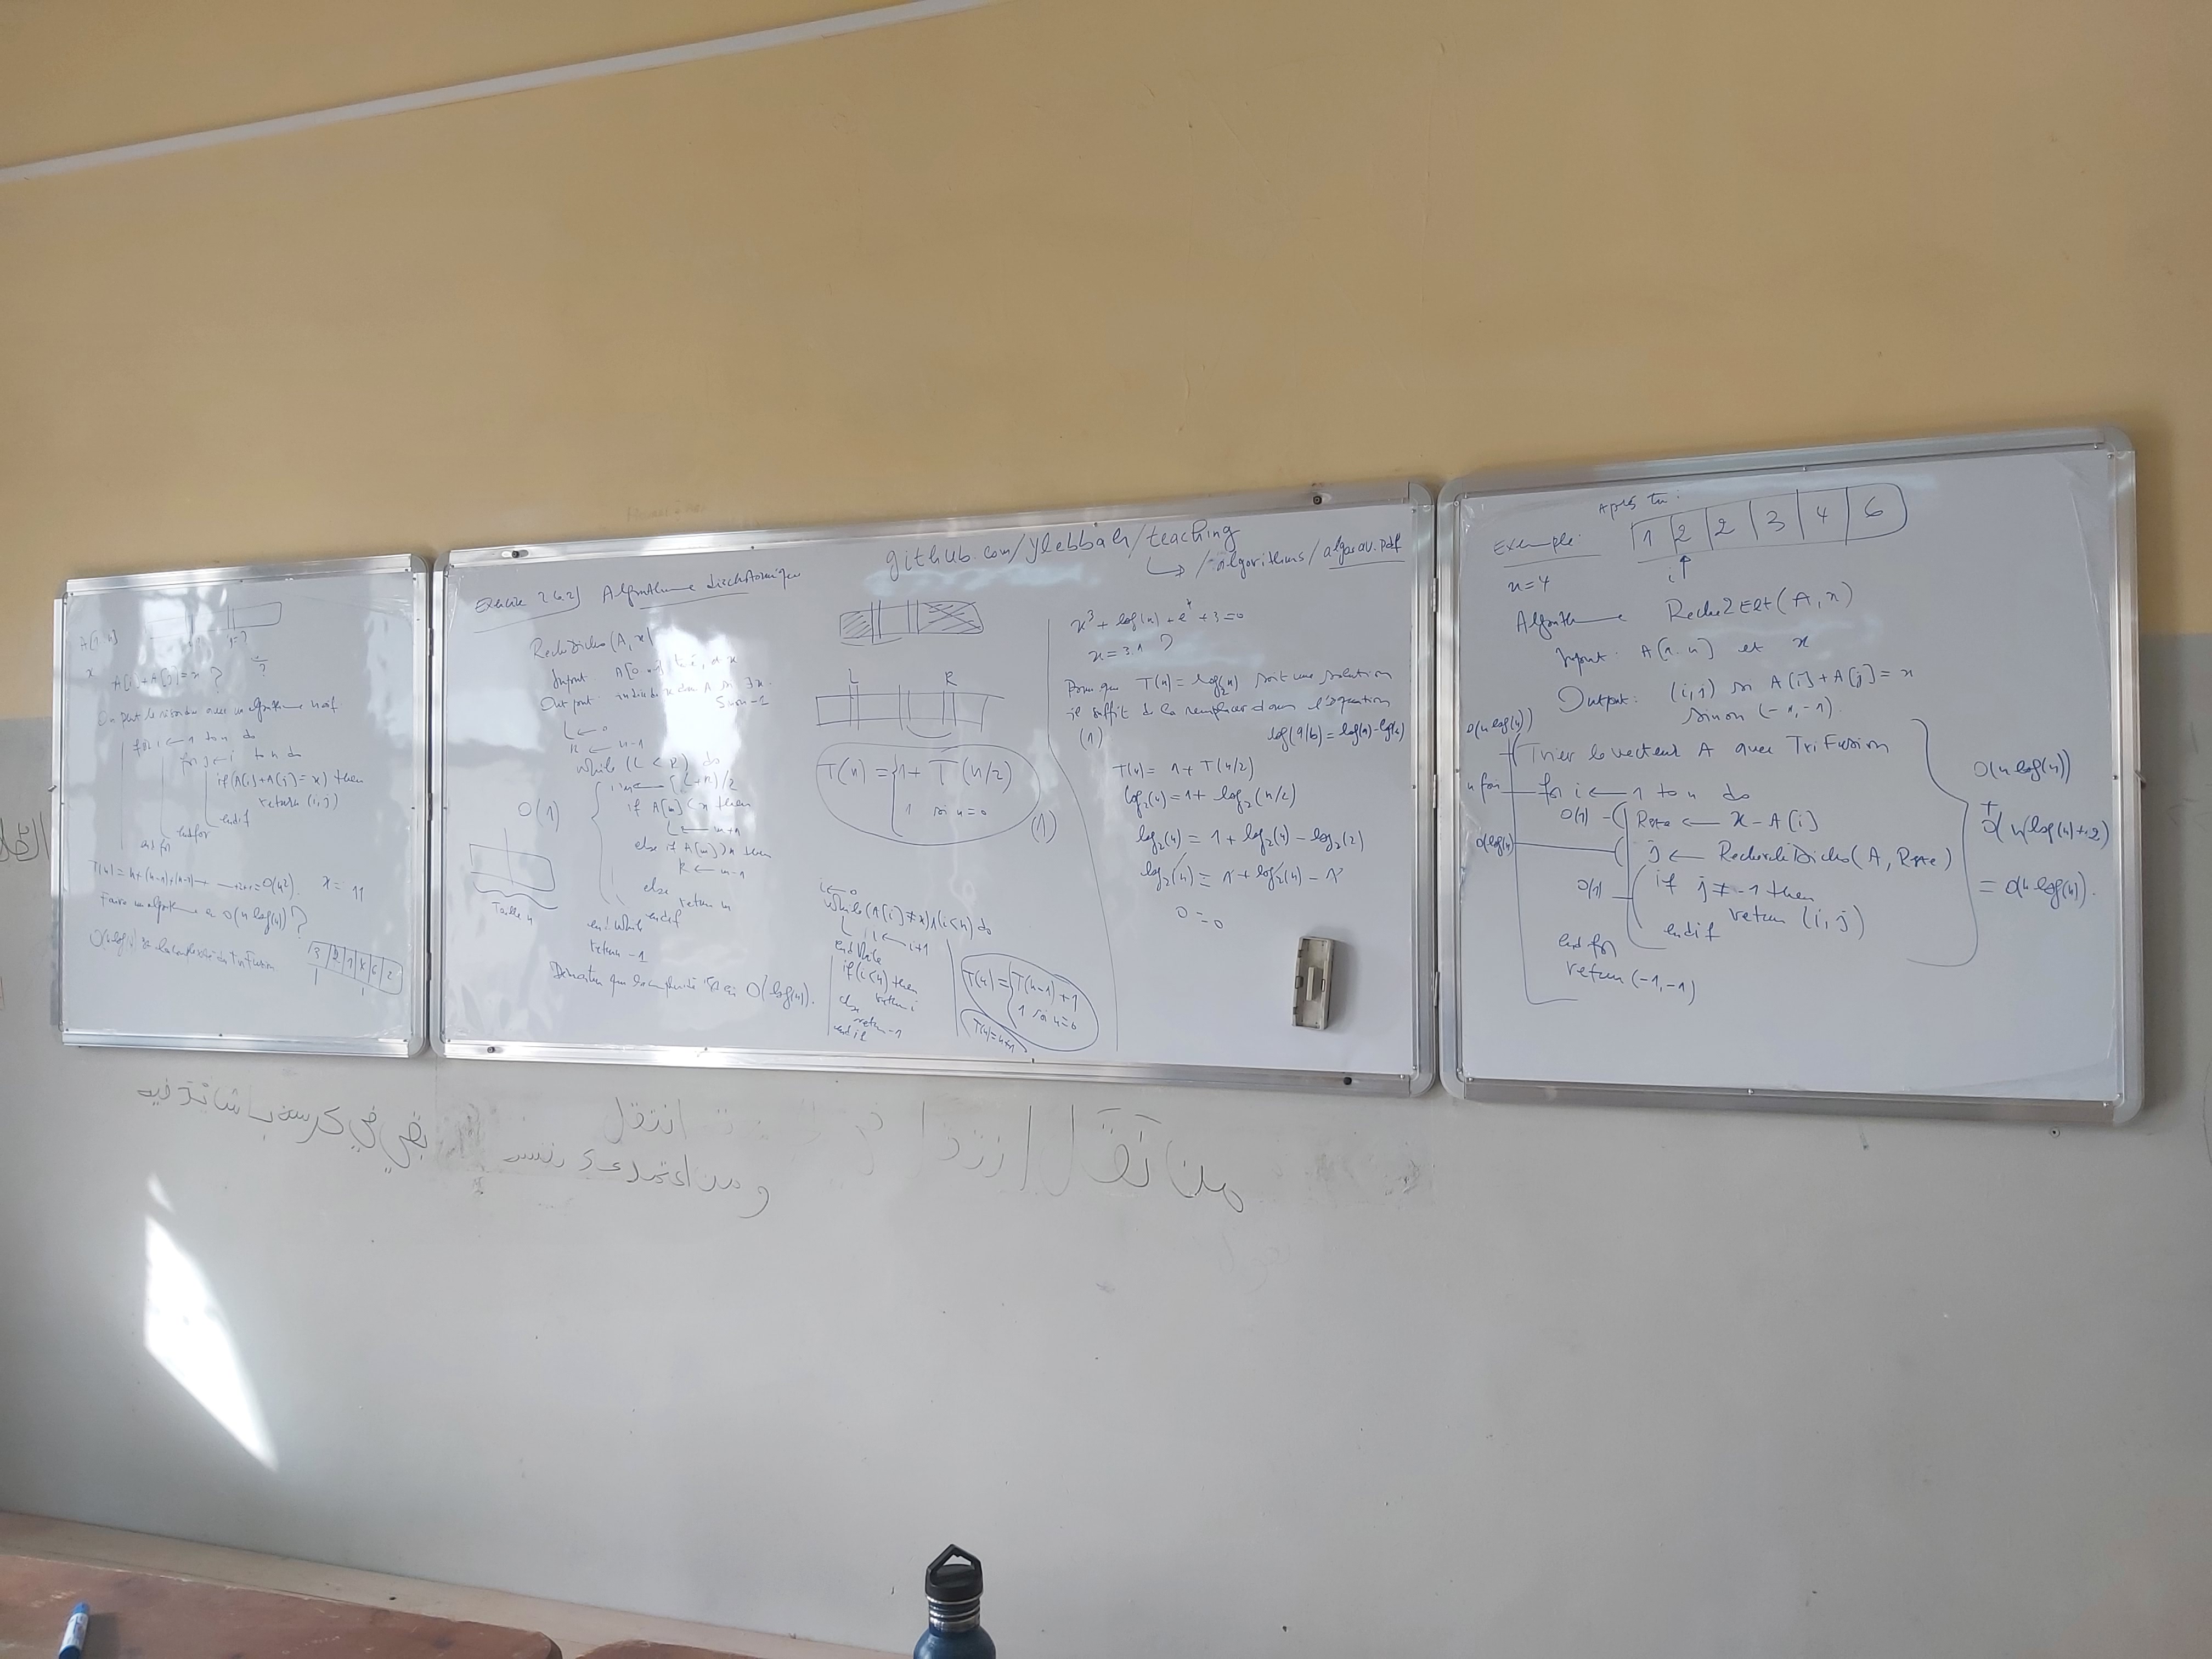 A[1..n]
i=?
x
A[i]+A[j]=x ?
On peut le résoudre avec un algorithme naïf.
for i ← 1 to n do
for j ← i to n do
if (A[i]+A[j]=x) then
return (i,j)
endif
endfor
end for
T(n)=n+(n-1)+(n-2)+...+2+1=O(n²).
x=11
Faire un algorithme en O(n log(n)) ?
O(n log(n)) est la complexité du TriFusion
3 2 1 4 6 2
github.com/ylebbah/teaching
↳ /-algorithms/algoav.pdf
Exercice 2.6.2) Algorithme dichotomique
RechDicho(A,x)
Input: A[0..n-1] trié, et x
Output: indice de x dans A si ∃x.
Sinon -1
L ← 0
R ← n-1
while (L < R) do
m ← (L+R)/2
if A[m] < x then
L ← m+1
else if A[m] > x then
R ← m-1
else
return m
endif
end while
return -1
O(1)
Taille n
Démontrer que la complexité est en O(log(n)).
L R
T(n) = { 1 + T(n/2)
1 si n=0
(1)
i ← 0
while (A[i] ≠ x) ∧ (i<n) do
i ← i+1
end while
if (i<n) then
return i
else
return -1
end if
T(n) = { T(n-1)+1
1 si n=0
T(n)=n+1
x³ + log(x) + eˣ + 3 = 0
x = 3.1 ?
Pour que T(n) = log₂(n) soit une solution
il suffit de la remplacer dans l'équation
(1)
log(a/b) = log(a)-log(b)
T(n) = 1 + T(n/2)
log₂(n) = 1 + log₂(n/2)
log₂(n) = 1 + log₂(n) - log₂(2)
log₂(n) = 1 + log₂(n) - 1
0 = 0
Après tri:
Exemple: 1 2 2 3 4 6
i
x=4
Algorithme Rech2Elt(A,x)
Input: A[1..n] et x
Output: (i,j) si A[i]+A[j]=x
sinon (-1,-1).
O(n log(n))
Trier le vecteur A avec TriFusion
n fois
for i ← 1 to n do
O(1)
Reste ← x-A[i]
O(log(n))
j ← RechercheDicho(A, Reste)
O(1)
if j ≠ -1 then
return (i,j)
endif
end for
return (-1,-1)
O(n log(n))
+
O(n(log(n)+2)
= O(n log(n)).
من تنقل انتقل
بقي في كرسه باشا تدفيه